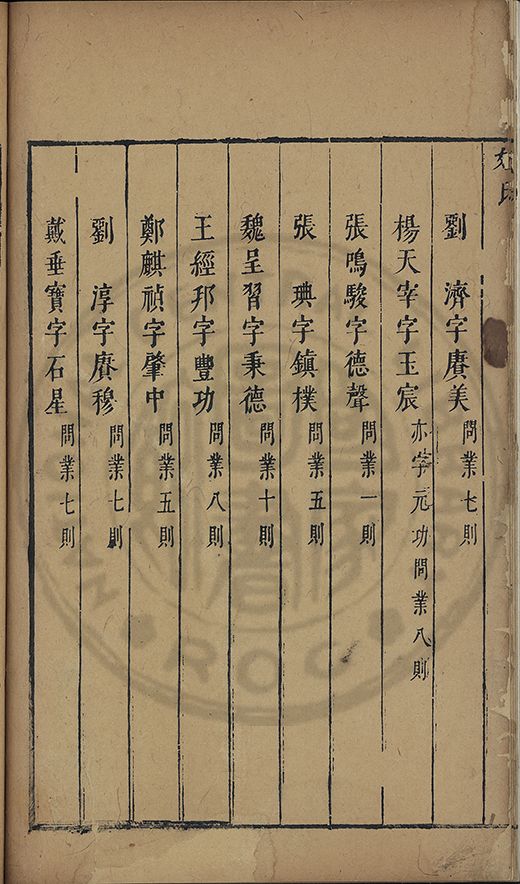 劉　濟字賡美問業七則
楊天宰字玉宸亦字元功問業八則
張鳴駿字德聲問業一則
張　琠字鎮樸問業五則
魏呈習字秉德問業十則
王經邦字豐功問業八則
鄭麒禎字肇中問業五則
劉　淳字賡穆問業七則
戴垂寶字石星問業七則
ROC